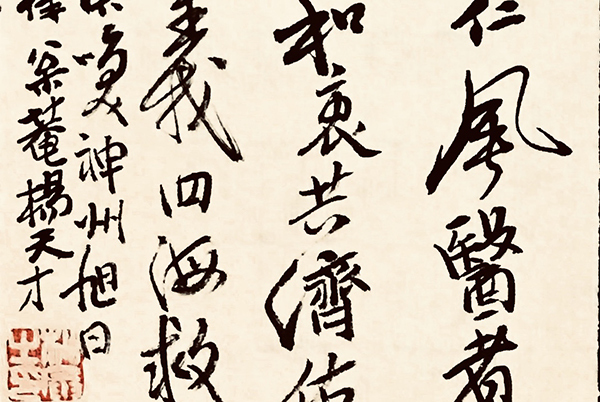 仁風醫者
和衷共濟佑
義四海救
喚神州旭日
菴楊天才